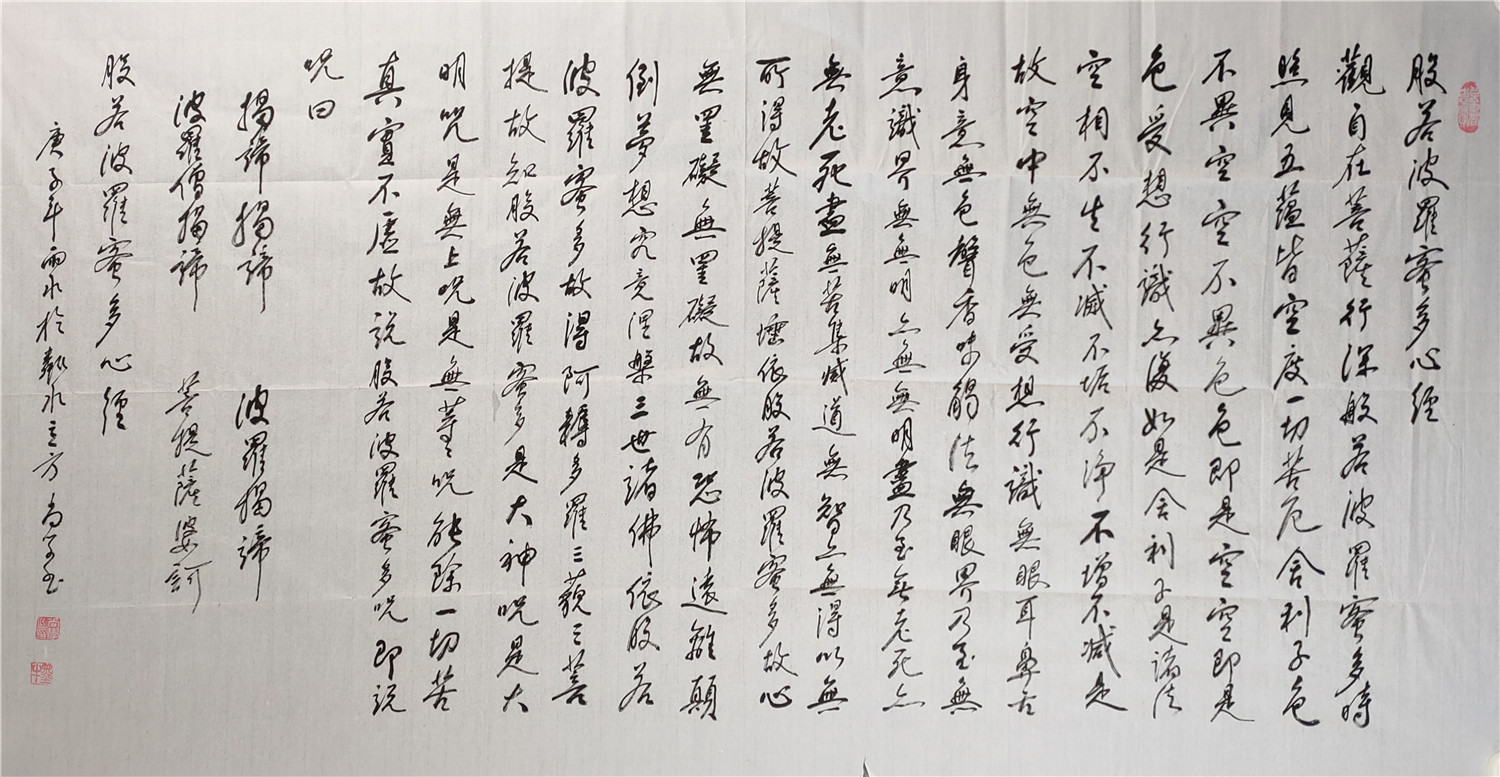 般若波羅蜜多心經
觀自在菩薩行深般若波羅蜜多時
照見五蘊皆空度一切苦厄舍利子色
不異空空不異色色即是空空即是
色受想行識亦復如是舍利子是諸法
空相不生不滅不垢不淨不增不減是
故空中無色無受想行識無眼耳鼻舌
身意無色聲香味觸法無眼界乃至無
意識界無無明亦無無明盡乃至無老死亦
無老死盡無苦集滅道無智亦無得以無
所得故菩提薩埵依般若波羅蜜多故心
無罣礙無罣礙故無有恐怖遠離顛
倒夢想究竟涅槃三世諸佛依般若
波羅蜜多故得阿耨多羅三藐三菩
提故知般若波羅蜜多是大神咒是大
明咒是無上咒是無等等咒能除一切苦
真實不虛故說般若波羅蜜多咒即說
咒曰
揭諦揭諦 波羅揭諦
波羅僧揭諦 菩提薩婆訶
般若波羅蜜多心經
庚子年雨水於